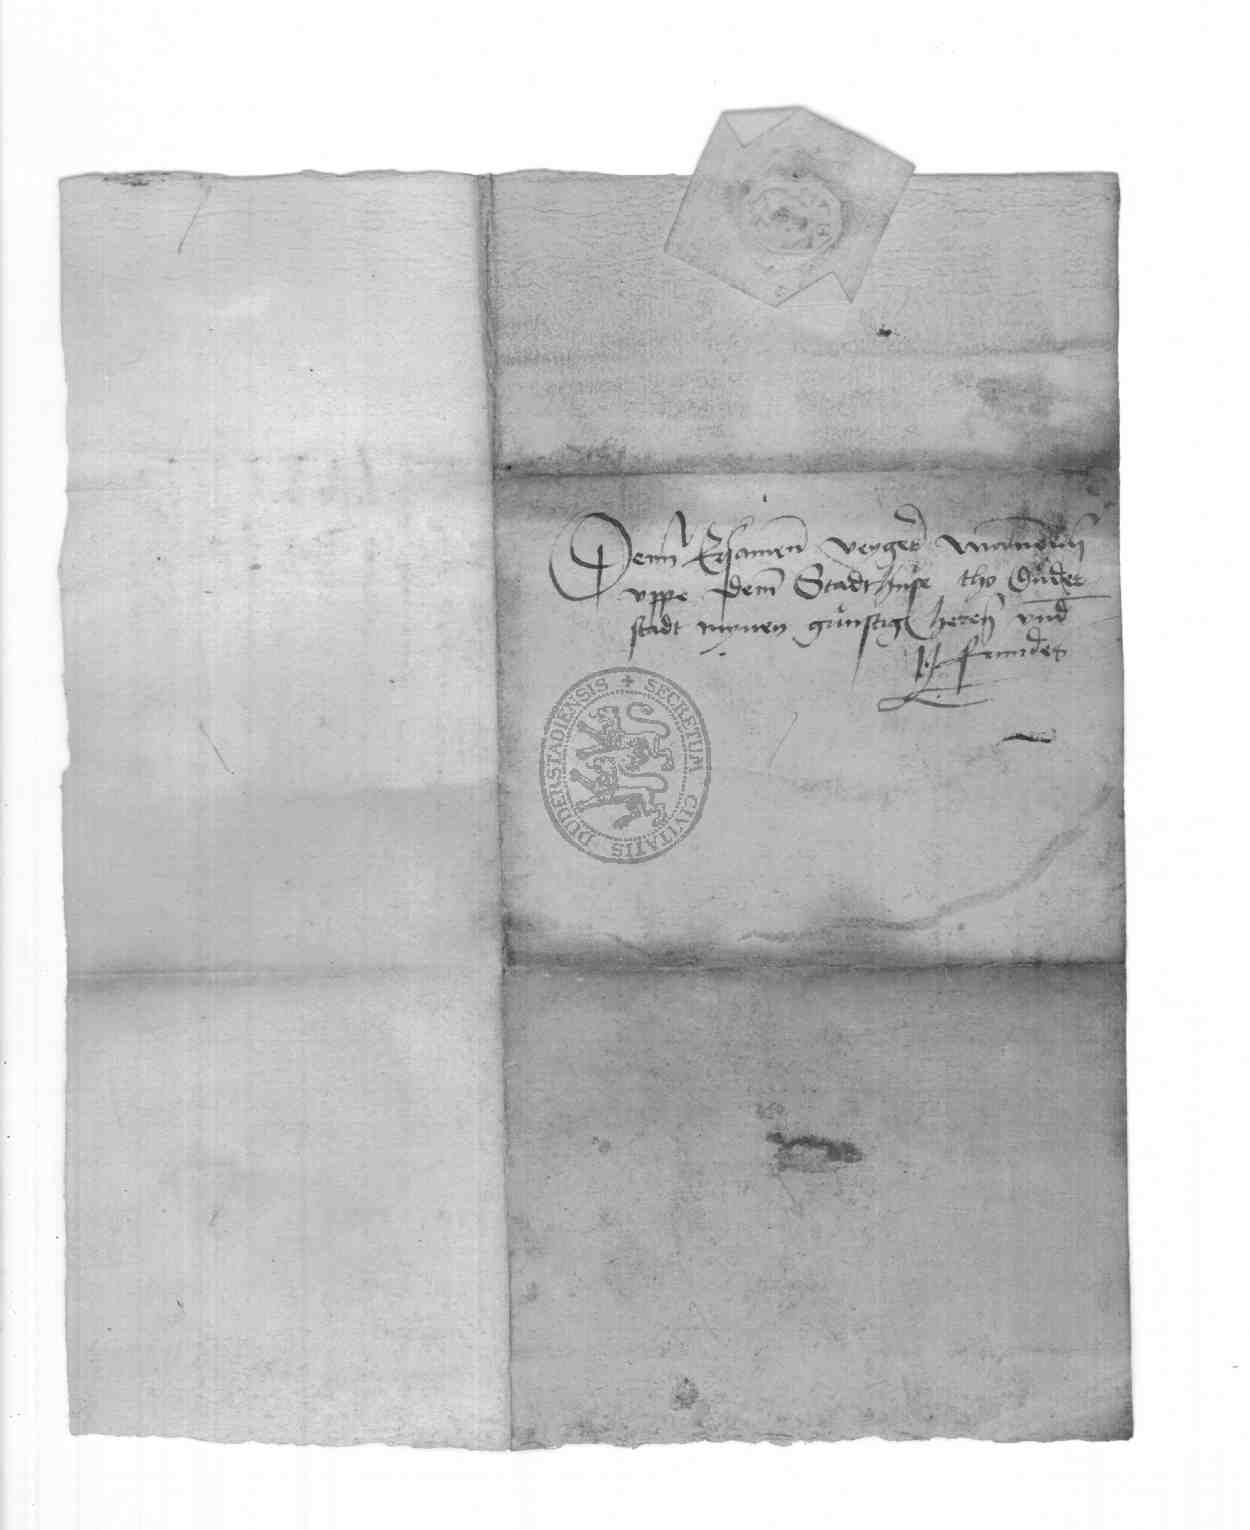 Denn Ersamen
uppe dem Stadthuse tho Duder
stadt mynen gunstig heren vnd
frunden
SECRETUM CIVITATIS DUDERSTADIENSIS